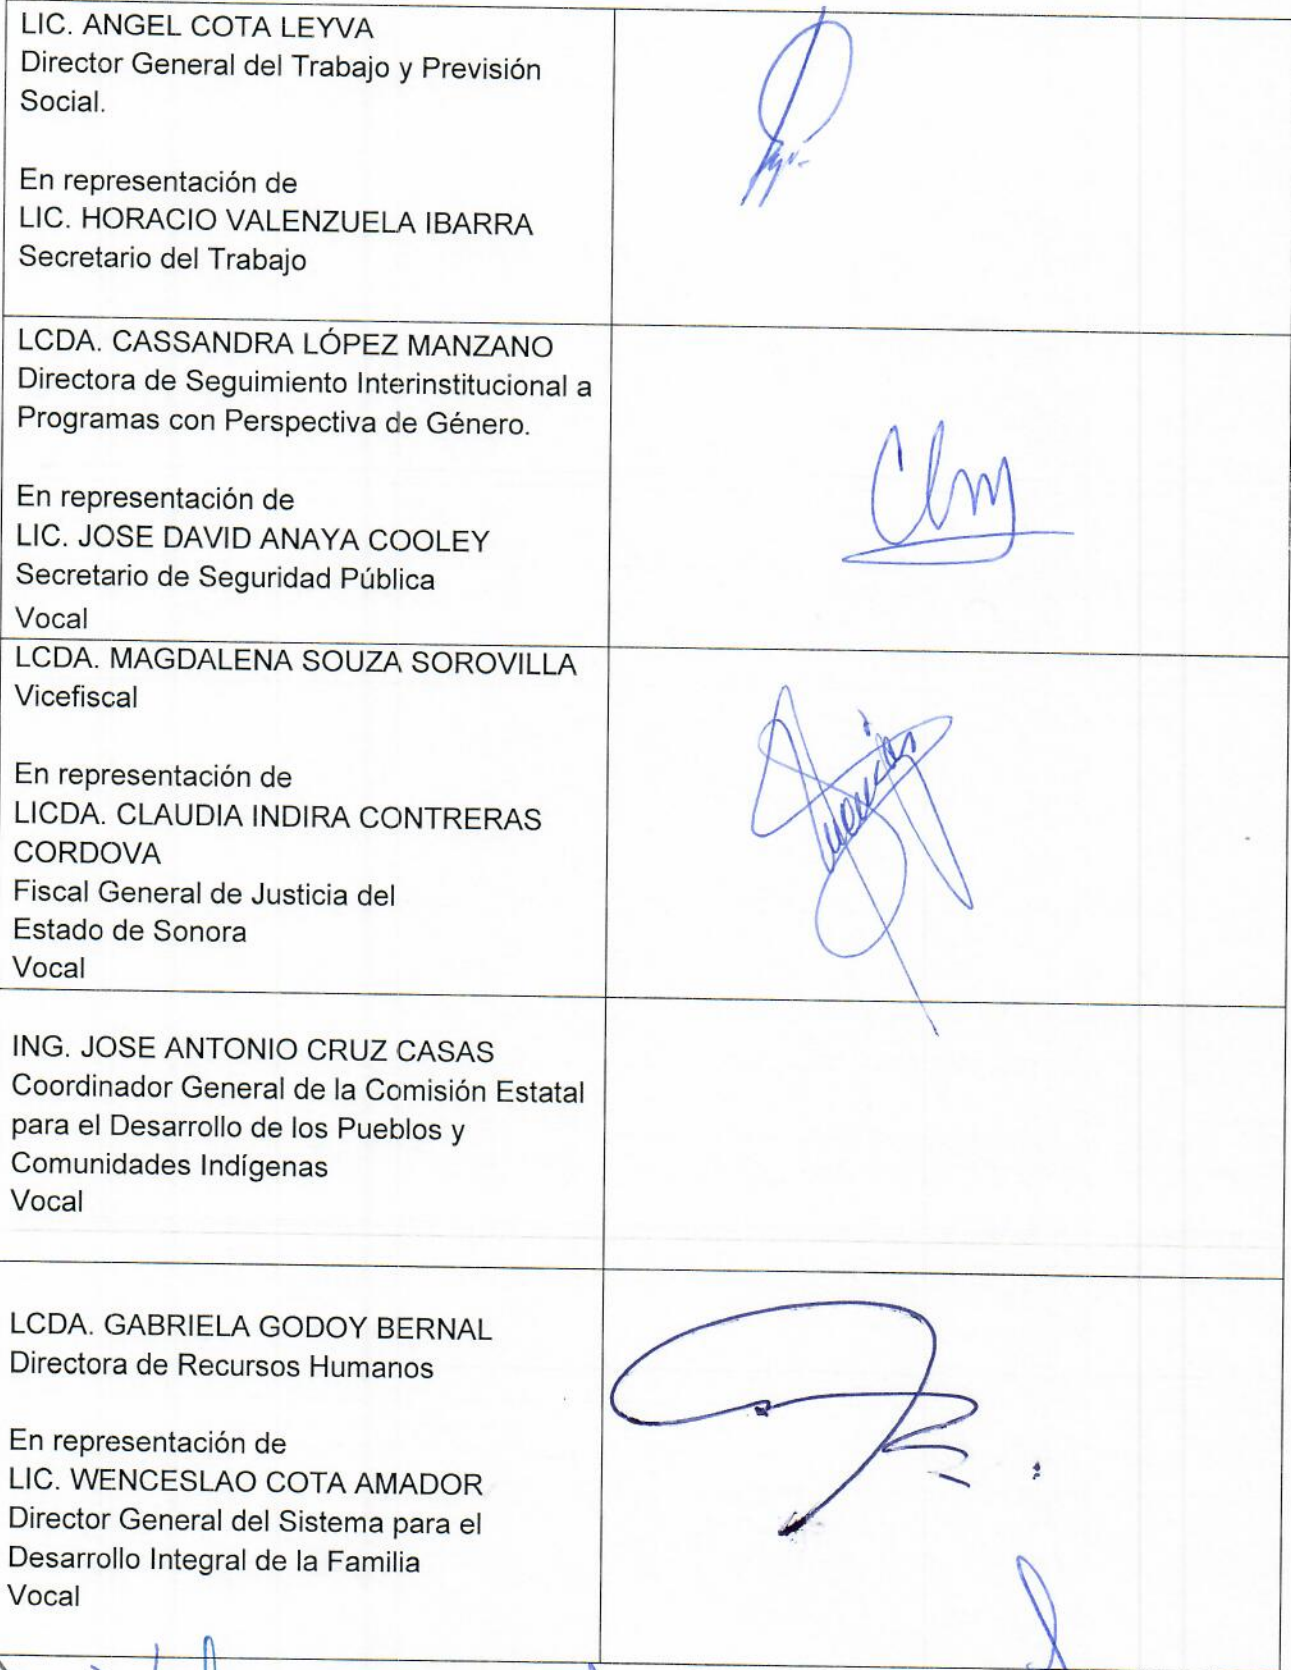 LIC. ANGEL COTA LEYVA
Director General del Trabajo y Previsión
Social.
En representación de
LIC. HORACIO VALENZUELA IBARRA
Secretario del Trabajo
LCDA. CASSANDRA LÓPEZ MANZANO
Directora de Seguimiento Interinstitucional a
Programas con Perspectiva de Género.
En representación de
LIC. JOSE DAVID ANAYA COOLEY
Secretario de Seguridad Pública
Vocal
LCDA. MAGDALENA SOUZA SOROVILLA
Vicefiscal
En representación de
LICDA. CLAUDIA INDIRA CONTRERAS
CORDOVA
Fiscal General de Justicia del
Estado de Sonora
Vocal
ING. JOSE ANTONIO CRUZ CASAS
Coordinador General de la Comisión Estatal
para el Desarrollo de los Pueblos y
Comunidades Indígenas
Vocal
LCDA. GABRIELA GODOY BERNAL
Directora de Recursos Humanos
En representación de
LIC. WENCESLAO COTA AMADOR
Director General del Sistema para el
Desarrollo Integral de la Familia
Vocal